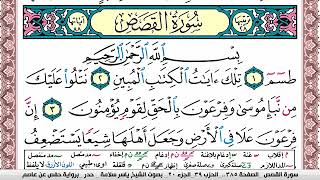 سُورَةُ القَصَصِ
بِسْمِ ٱللَّهِ ٱلرَّحْمَٰنِ ٱلرَّحِيمِ
طسٓمٓ ١ تِلْكَ ءَايَٰتُ ٱلْكِتَٰبِ ٱلْمُبِينِ ٢ نَتْلُوا۟ عَلَيْكَ
مِن نَّبَإِ مُوسَىٰ وَفِرْعَوْنَ بِٱلْحَقِّ لِقَوْمٍ يُؤْمِنُونَ ٣ إِنَّ
فِرْعَوْنَ عَلَا فِى ٱلْأَرْضِ وَجَعَلَ أَهْلَهَا شِيَعًا يَسْتَضْعِفُ
سورة القصص الصفحة ٣٨٥ الحزب ٣٩ الجزء ٢٠ بصوت الشيخ ياسر سلامة حدر برواية حفص عن عاصم